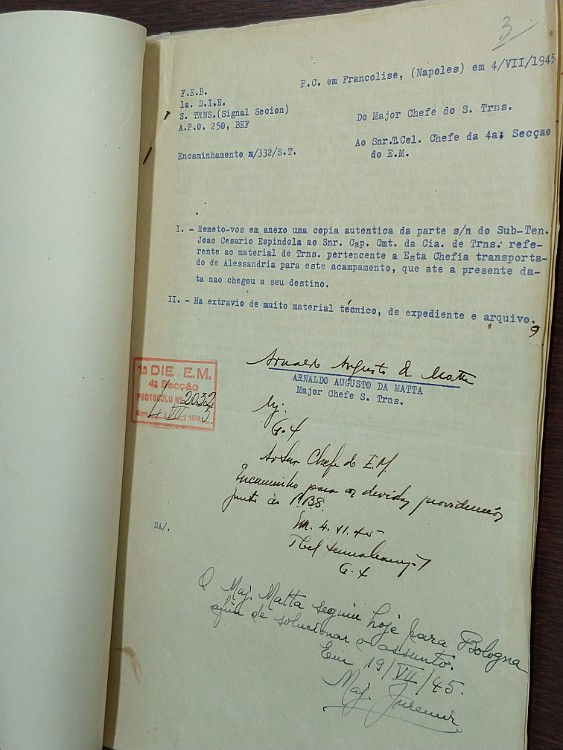 3
P.C. em Francolise, (Napoles) em 4/VII/1945
F.E.B.
1a. D.I.E.
S. TRNS.(Signal Secion)
A.P.O. 250, BEF
Do Major Chefe do S. Trns.
Ao Snr.T.Cel. Chefe da 4a. Secçao
do E.M.
Encaminhamento n/332/S.T.
I. - Remeto-vos em anexo uma copia autentica da parte s/n do Sub-Ten.
Joao Cesario Espindola ao Snr. Cap. Cmt. da Cia. de Trns. refe-
rente ao material de Trns. pertencente a Esta Chefia transporta-
do de Alessandria para este acampamento, que ate a presente da-
ta nao chegou a seu destino.
II. - Ha extravio de muito material técnico, de expediente e arquivo.
Arnaldo Augusto da Matta
ARNALDO AUGUSTO DA MATTA
Major Chefe S. Trns.
1a DIE E.M.
4a Secção
PROTOCOLO Nº 2032
Em 4/VII/1945
G.4
Ao Snr Chefe do EM
Encaminho para as devidas providencias
junto às P.B.S.
Em. 4.VI.45
G.4
SA/.
O Maj. Matta seguiu hoje para Bologna
afim de solucionar o assunto.
Em 19/VII/45.
Maj.